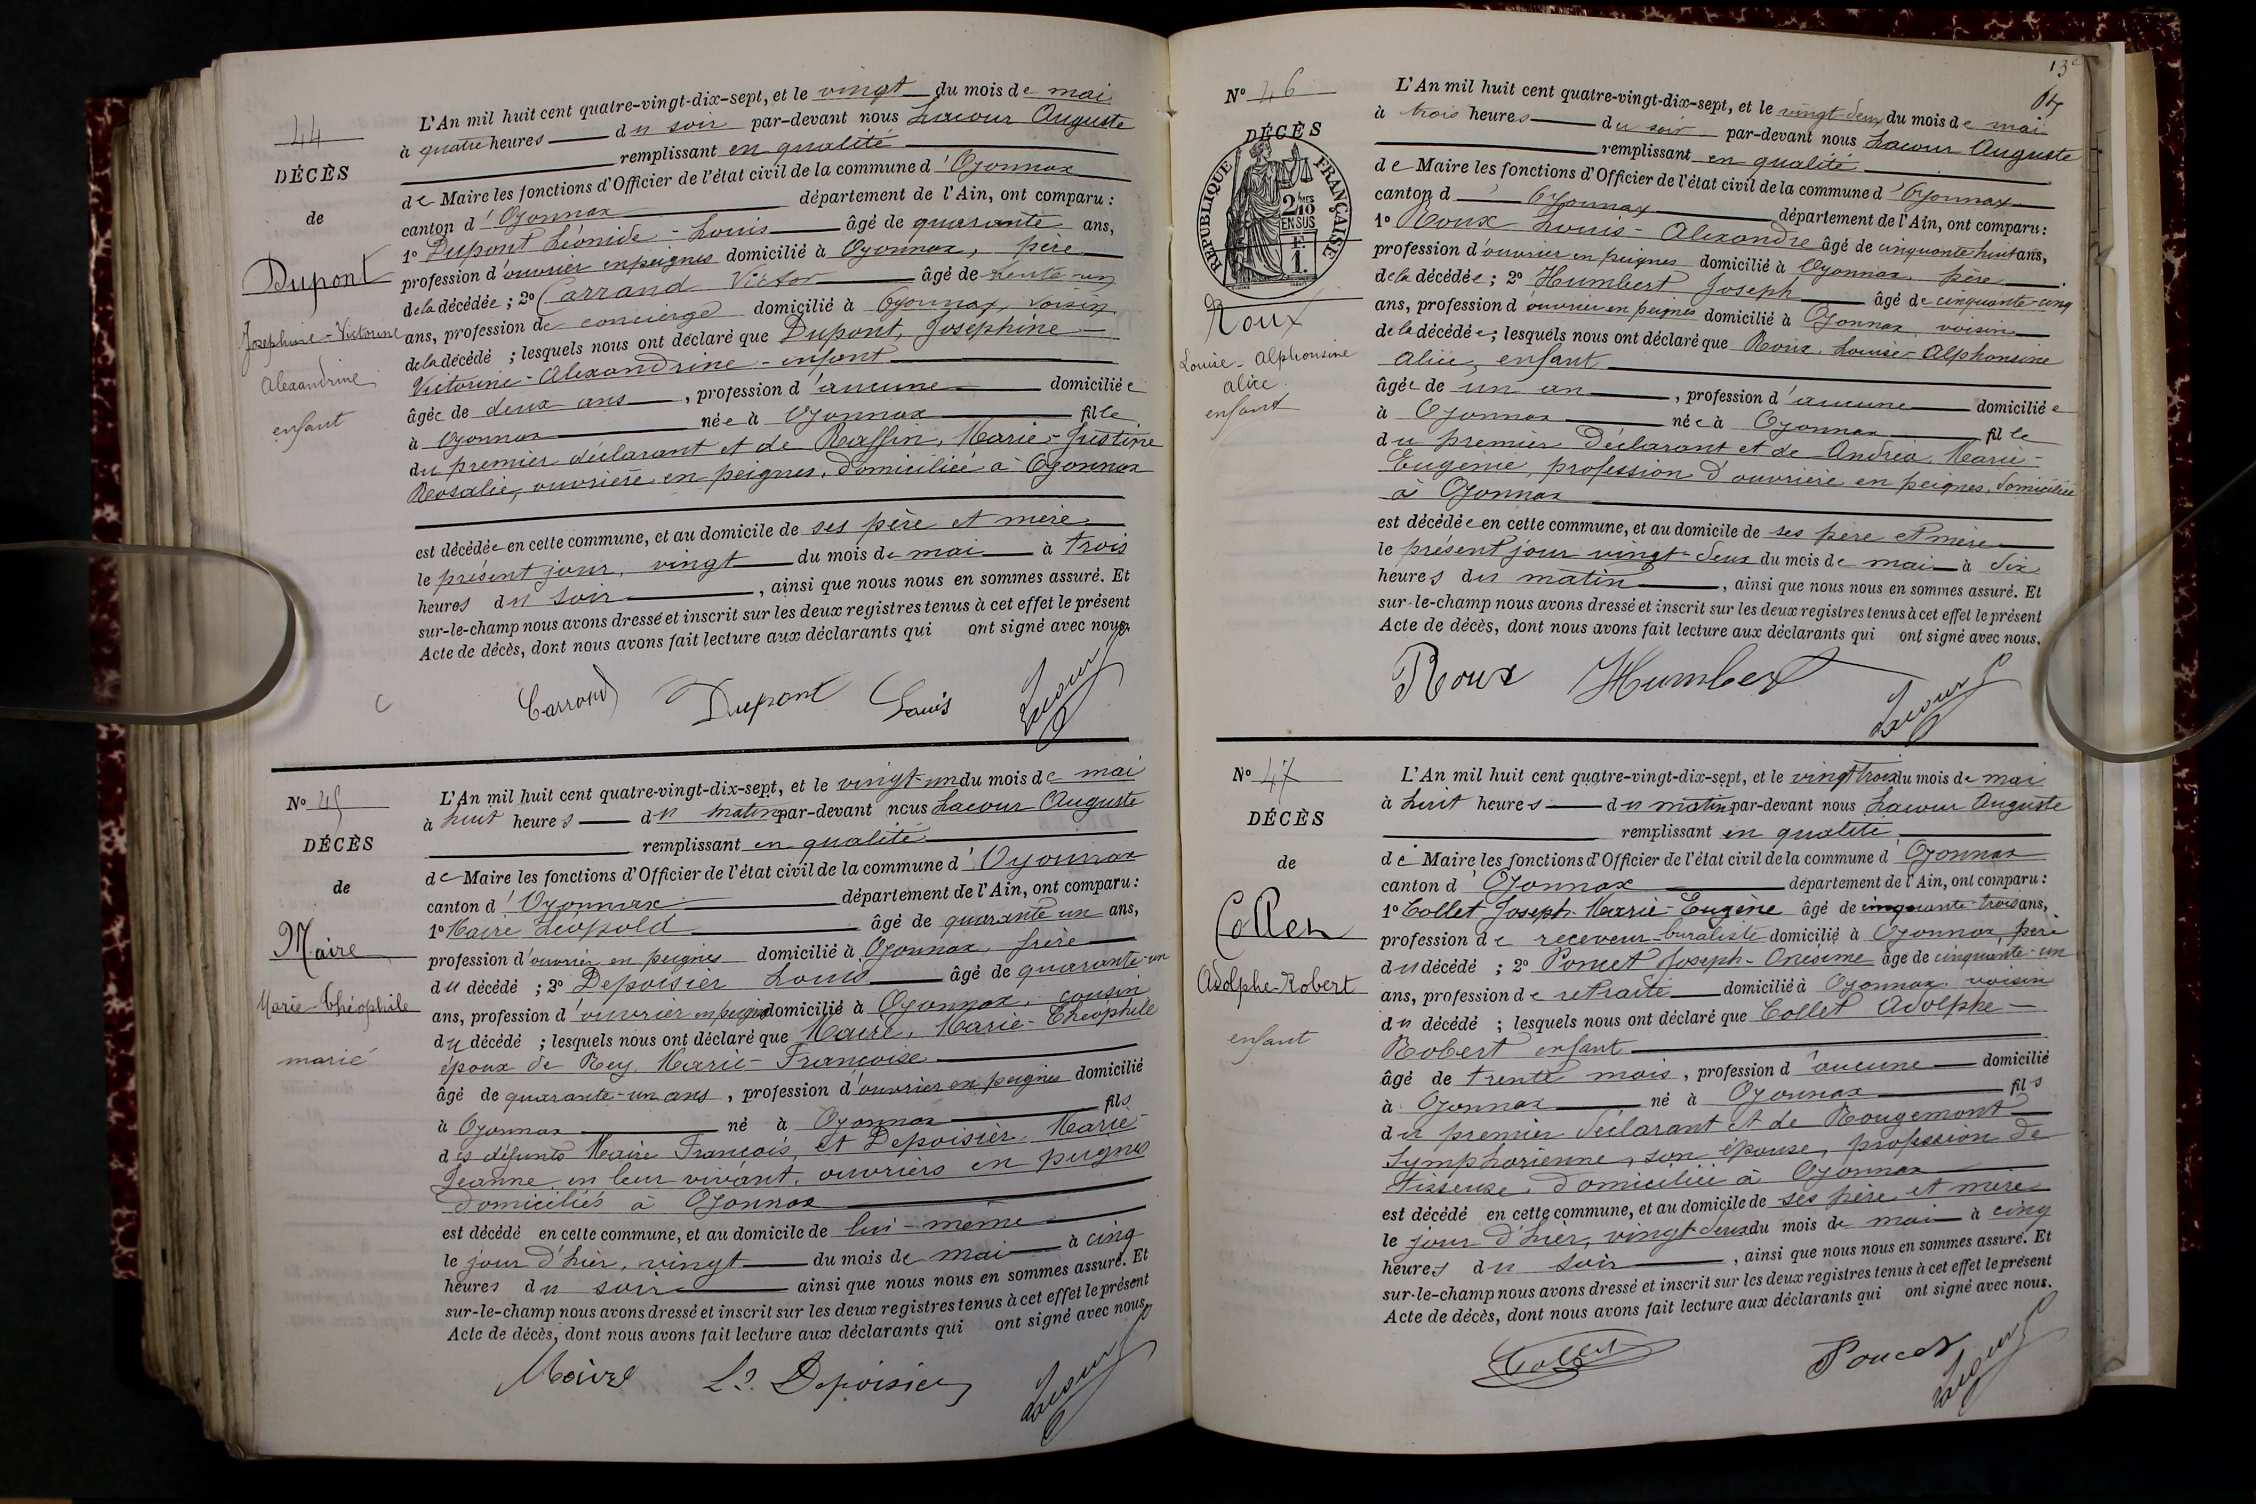 44
DÉCÈS
de
Dupont
Joséphine-Victorine
Alexandrine
enfant
L'An mil huit cent quatre-vingt-dix-sept, et le vingt du mois de mai
à quatre heures du soir par-devant nous Lacour Auguste
remplissant en qualité
de Maire les fonctions d'Officier de l'état civil de la commune d'Oyonnax
canton d'Oyonnax département de l'Ain, ont comparu :
1º Dupont Léonide-Louis âgé de quarante ans,
profession d'ouvrier en peignes domicilié à Oyonnax, père
de la décédée ; 2º Carrand Victor âgé de trente-un
ans, profession de concierge domicilié à Oyonnax, voisin
de la décédé ; lesquels nous ont déclaré que Dupont, Joséphine
Victorine-Alexandrine-enfant
âgée de deux ans, profession d'aucune domiciliée
à Oyonnax née à Oyonnax fille
du premier déclarant et de Raffin, Marie-Justine
Rosalie, ouvrière en peignes, domiciliée à Oyonnax
est décédée en cette commune, et au domicile de ses père et mère
le présent jour, vingt du mois de mai à trois
heures du soir, ainsi que nous nous en sommes assuré. Et
sur-le-champ nous avons dressé et inscrit sur les deux registres tenus à cet effet le présent
Acte de décès, dont nous avons fait lecture aux déclarants qui ont signé avec nous.
Carrand Dupont Louis Lacour
Nº 45
DÉCÈS
de
Maire
Marie-Théophile
marié
L'An mil huit cent quatre-vingt-dix-sept, et le vingt-un du mois de mai
à huit heures du matin par-devant nous Lacour Auguste
remplissant en qualité
de Maire les fonctions d'Officier de l'état civil de la commune d'Oyonnax
canton d'Oyonnax département de l'Ain, ont comparu :
1º Maire Léopold âgé de quarante un ans,
profession d'ouvrier en peignes domicilié à Oyonnax, frère
du décédé ; 2º Depoisier Louis âgé de quarante-un
ans, profession d'ouvrier en peignes domicilié à Oyonnax, cousin
du décédé ; lesquels nous ont déclaré que Maire, Marie-Théophile
époux de Rey, Marie-Françoise
âgé de quarante-un ans, profession d'ouvrier en peignes domicilié
à Oyonnax né à Oyonnax fils
des défunts Maire François, et Depoisier, Marie-
Jeanne, en leur vivant, ouvriers en peignes
domiciliés à Oyonnax
est décédé en cette commune, et au domicile de lui-même
le jour d'hier, vingt du mois de mai à cinq
heures du soir ainsi que nous nous en sommes assuré. Et
sur-le-champ nous avons dressé et inscrit sur les deux registres tenus à cet effet le présent
Acte de décès, dont nous avons fait lecture aux déclarants qui ont signé avec nous.
Maire Ls. Depoisier Lacour
13e
Nº 46
DÉCÈS
RÉPUBLIQUE FRANÇAISE
2/10 MES
EN SUS
F.
1.
Roux
Louise-Alphonsine
Alice
enfant
L'An mil huit cent quatre-vingt-dix-sept, et le vingt-deux du mois de mai
à trois heures du soir par-devant nous Lacour Auguste
remplissant en qualité
de Maire les fonctions d'Officier de l'état civil de la commune d'Oyonnax
canton d'Oyonnax département de l'Ain, ont comparu :
1º Roux Louis-Alexandre âgé de cinquante huit ans,
profession d'ouvrier en peignes domicilié à Oyonnax, père
de la décédée ; 2º Humbert Joseph âgé de cinquante-cinq
ans, profession d'ouvrier en peignes domicilié à Oyonnax voisin
de la décédée ; lesquels nous ont déclaré que Roux, Louise-Alphonsine
Alice, enfant
âgée de un an, profession d'aucune domiciliée
à Oyonnax née à Oyonnax fille
du premier déclarant et de Andréa, Marie-
Eugénie, profession d'ouvrière en peignes, domiciliée
à Oyonnax
est décédée en cette commune, et au domicile de ses père et mère
le présent jour vingt-deux du mois de mai à dix
heures du matin, ainsi que nous nous en sommes assuré. Et
sur-le-champ nous avons dressé et inscrit sur les deux registres tenus à cet effet le présent
Acte de décès, dont nous avons fait lecture aux déclarants qui ont signé avec nous.
Roux Humbert Lacour
Nº 47
DÉCÈS
de
Collet
Adolphe-Robert
enfant
L'An mil huit cent quatre-vingt-dix-sept, et le vingt trois du mois de mai
à huit heures du matin par-devant nous Lacour Auguste
remplissant en qualité
de Maire les fonctions d'Officier de l'état civil de la commune d'Oyonnax
canton d'Oyonnax département de l'Ain, ont comparu :
1º Collet Joseph-Marie-Eugène âgé de cinquante-trois ans,
profession de receveur-buraliste domicilié à Oyonnax père
du décédé ; 2º Poncet Joseph-Onésime âgé de cinquante-un
ans, profession de retraité domicilié à Oyonnax voisin
du décédé ; lesquels nous ont déclaré que Collet Adolphe
Robert enfant
âgé de trente mois, profession d'aucune domicilié
à Oyonnax né à Oyonnax fils
du premier déclarant et de Rougemont
Symphorienne, son épouse, profession de
tisseuse, domiciliée à Oyonnax
est décédé en cette commune, et au domicile de ses père et mère
le jour d'hier, vingt-deux du mois de mai à cinq
heures du soir, ainsi que nous nous en sommes assuré. Et
sur-le-champ nous avons dressé et inscrit sur les deux registres tenus à cet effet le présent
Acte de décès, dont nous avons fait lecture aux déclarants qui ont signé avec nous.
Collet Poncet Lacour